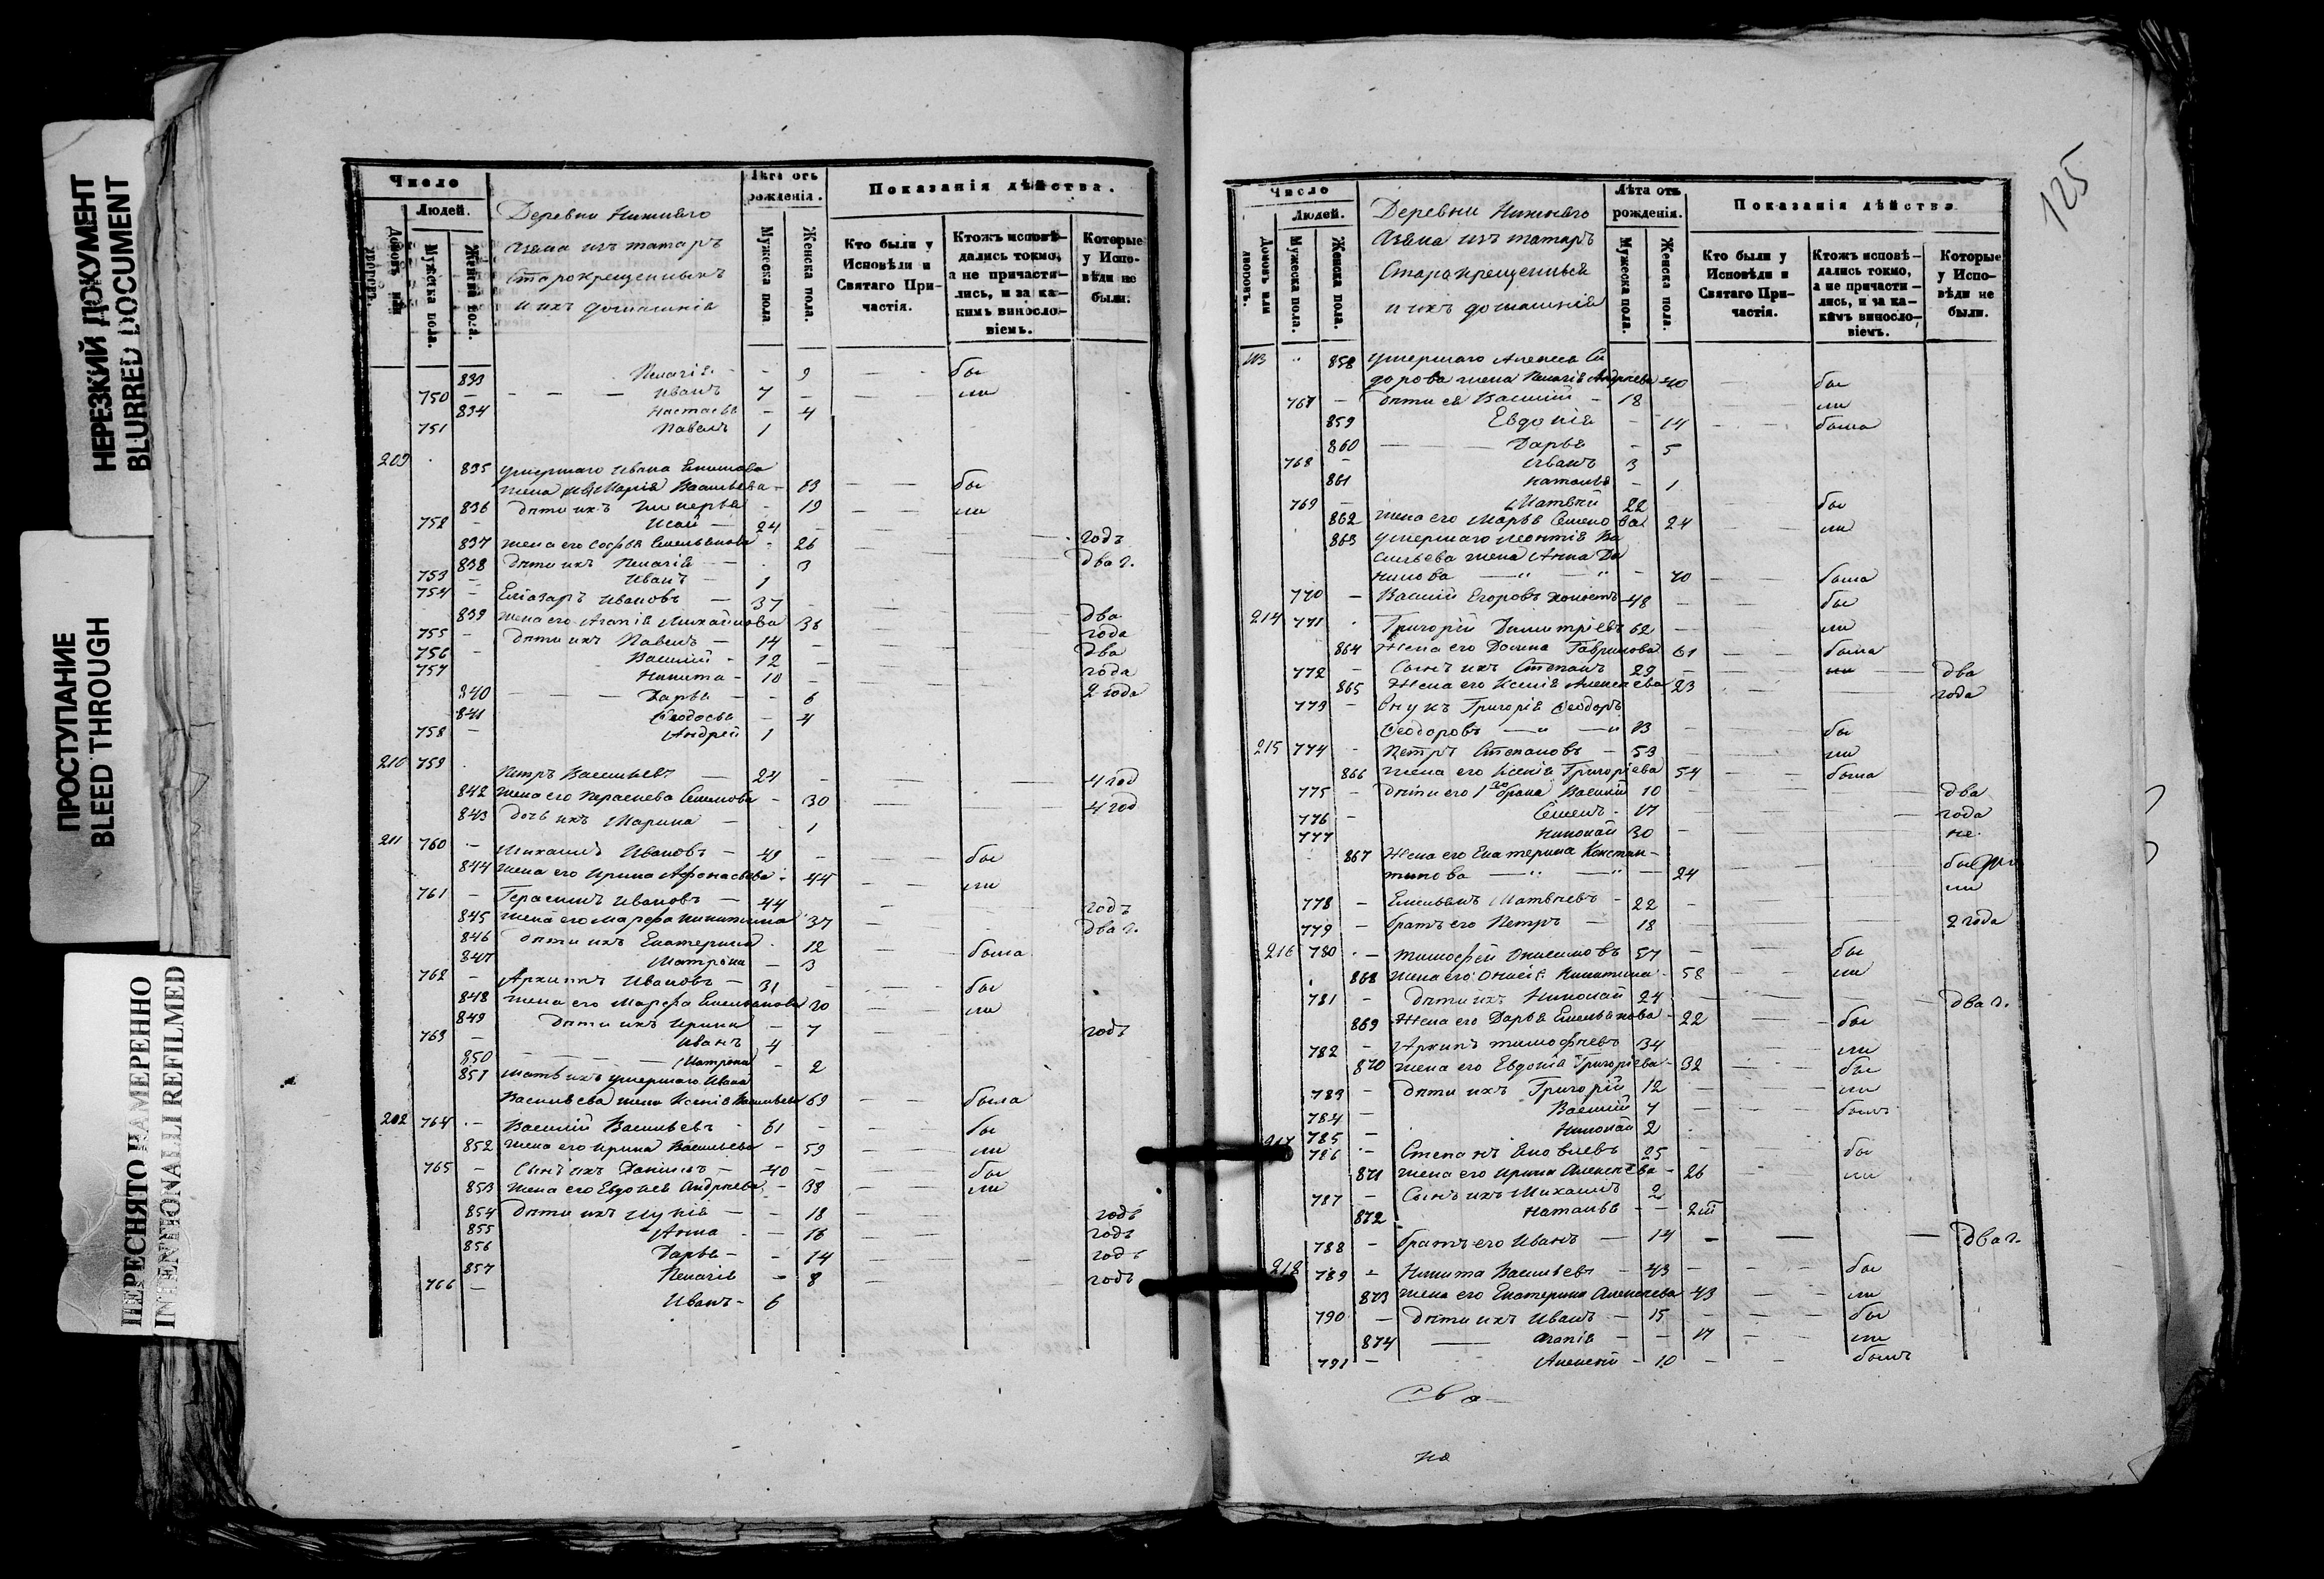 НЕРЕЗКИЙ ДОКУМЕНТ
BLURRED DOCUMENT
ПРОСТУПАНИЕ
BLEED THROUGH
ПЕРЕСНЯТО НАМЕРЕННО
INTENTIONALLI REFILMED
Число
Людей.
Домовъ или дворовъ.
Мужеска пола.
Женска пола.
Деревни Нижняго
Азяка изъ татаръ
Старокрещенныхъ
и ихъ домашнія
Лѣта отъ рожденія.
Мужеска пола
Женска пола.
Показанія дѣйства.
Кто были у Исповѣди и Святаго Причастія.
Ктожъ исповѣдались токмо, а не причастились, и за какимъ винословіемъ.
Которые у Исповѣди не были.
833 Пелагія - 9 — — бы
750 — — — Иванъ 7 — ли
834 Настасья — 4
751 Павелъ 1
209 835 умершаго Ивана
жена Марія Васильева — 63 — — бы
836 дѣти ихъ — 19 — — ли
752 — Исай — 24 —
837 жена его Софья Емельянова - 26 — годъ
838 дѣти ихъ Пелагія — 3 два г.
753 — Иванъ — 1
754 — Еліазаръ Ивановъ — 37 —
839 жена его Агапія Михайлова 36 — два
755 — дѣти ихъ Павелъ — 14 — года
756 — Василій - 12 — два
757 Никита - 10 — года
840 — — — Дарья — — 6 2 года
841 Ѳеодосья — 4
758 — Андрей 1
210 759 Петръ Васильевъ — 24 — 4 год
842 жена его Парасковья Семенова - 30 — 4 год
843 дочь ихъ Марина — 1
211 760 — Михаилъ Ивановъ — 49 — бы
844 жена его Ирина Афонасьева - 44 — — ли
761 — Герасимъ Ивановъ — 44 — годъ
845 жена его Марфа Никитина 37 — два г.
846 дѣти ихъ Екатерина - 12 — — была
847 Матрона — 3
762 — Архипъ Ивановъ — 31 — бы
848 жена его Марфа Емельянова 30 — — ли
849 дѣти ихъ Ирина — 7 годъ
763 — Иванъ 4
850 — — — Матрона — 2
851 мать ихъ умершаго Ивана
Васильева жена Ксенія Васильева 69 — — была
202 764 — Василій Васильевъ - 61 — бы
852 жена его Ирина Васильева — 59 — ли
765 — Сынъ ихъ Даніилъ — 40 — бы
853 жена его Евдокея Андреева — 38 — — ли
854 дѣти ихъ Лукія — — 18 — годъ
855 Анна — 16 — годъ
856 Дарья — - 14 — годъ
857 Пелагія - 8 — годъ
766 — Иванъ - 6
125
Число
Людей.
Домовъ или дворовъ.
Мужеска пола.
Женска пола.
Деревни Нижняго
Азяка изъ татаръ
Старокрещенныя
и ихъ домашнія
Лѣта отъ рожденія.
Мужеска пола.
Женска пола.
Показанія дѣйства
Кто были у Исповѣди и Святаго Причастія.
Ктожъ исповѣдались токмо, а не причастились, и за какимъ винословіемъ.
Которые у Исповѣди не были.
213 " 858 умершаго Алексея Си
дорова жена Пелагія Андреева 40 — — бы
767 — дѣти ея Василій - 18 ли
859 Евдокія - 14 — — была
860 — — Дарья - 5
768 — Иванъ 3
861 Наталья - 1
769 — Матвѣй 22 бы
862 жена его Марья Семенова 24 — — ли
863 умершаго Леонтія Ва
сильева жена Анна Да
нилова — " — " - 70 — — была
770 — Василій Егоровъ холостъ 48 — — бы
214 771 Григорій Димитріевъ 62 — ли
864 жена его Домна Гаврилова 61 — — была
772 — Сынъ ихъ Степанъ 29 — ли — два
865 Жена его Ксенія Алексеева 23 — года
773 — Внукъ Григорія Ѳеодоръ
Ѳеодоровъ — " — " 13 — бы
215 774 - Петръ Степановъ — 53 — ли
866 жена его Ксенія Григорьева 54 — — была
775 — дѣти его 1го брака Василій 10 — два
776 — Семенъ - 17 — года
777 Николай 30 — не
867 Жена его Екатерина Констан-
тинова — " — " — 24 ли
778 — Емельянъ Матвѣевъ - 22 —
779 — братъ его Петръ — 18 — 2 года
216 780 — Тимофей Онисимовъ 57 — бы
868 жена его Никитина - 58 — — ли
781 — дѣти ихъ Николай 24 — два г.
869 Жена его Дарья Емельянова - 22 — бы
782 — Архипъ Тимофеевъ 34 — ли
870 жена его Евдокія Григорьева - 32 — — бы
783 — дѣти ихъ Григорій 12 — ли
784 — Василій 7 — былъ
785 — Николай 2
217 786 — Степанъ Яковлевъ 25 — бы
871 жена его Ирина Алексеева - 26 — ли
787 — Сынъ ихъ Михаилъ 2
872 Наталья — —
788 — братъ его Иванъ — 14 — — — два г.
218 789 - Никита Васильевъ — 43 — — бы
873 жена его Екатерина Алексеева 43 — — ли
790 — дѣти ихъ Иванъ — 15 — бы
874 — Агапія — — 17 — — ли
791 — Алексей - 10 — — былъ